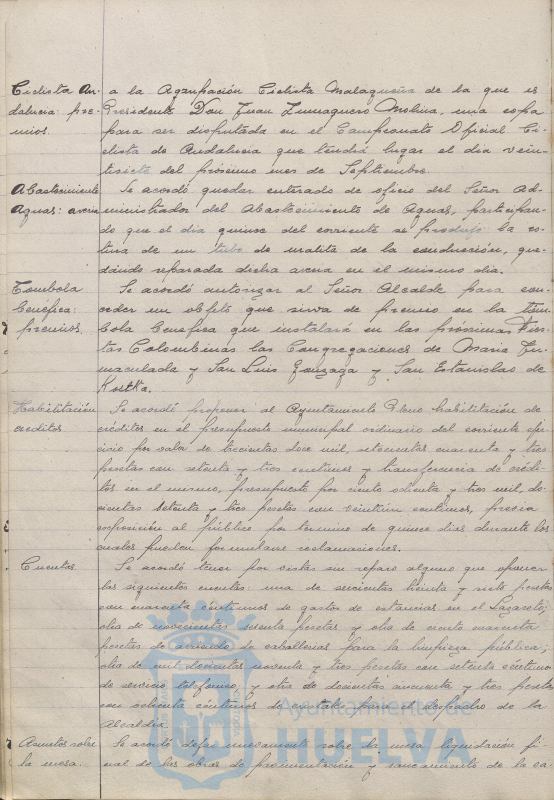 Ciclista An- a la Agrupación Ciclista Malagueña de la que es
dalucia: pre- Presidente Don Juan Zumaquero Molina, una copa
mios. para ser disputada en el Campeonato Oficial Ci-
clista de Andalucia que tendrá lugar el dia vein-
tisiete del próximo mes de Septiembre.
Abastecimiento Se acordó quedar enterado de oficio del Señor Ad-
Aguas: averia ministrador del Abastecimiento de Aguas, participan-
do que el dia quince del corriente se produjo la ro-
tura de un tubo de uralita de la conducción, que-
dando reparada dicha averia en el mismo dia.
Tombola Se acordó autorizar al Señor Alcalde para con-
benéfica: ceder un objeto que sirva de premio en la tóm-
premios. bola benéfica que instalará en las próximas Fies-
tas Colombinas las Congregaciones de Maria In-
maculada y San Luis Gonzaga y San Estanislao de
Kostka.
Habilitación Se acordó proponer al Ayuntamiento Pleno habilitación de
creditos créditos en el presupuesto municipal ordinario del corriente ejer-
cicio por valor de trescientas doce mil, setecientas cuarenta y tres
pesetas con setenta y tres centimos y transferencia de crédi-
tos en el mismo, presupuesto por ciento ochenta y tres mil, dos-
cientas setenta y tres pesetas con veintiún centimos, previa
exposición al público por termino de quince dias durante los
cuales puedan formularse reclamaciones.
Cuentas. Se acordó tener por vistas sin reparo alguno que oponer
las siguientes cuentas: una de seiscientas treinta y siete pesetas
con cuarenta centimos de gastos de estancias en el Lazareto;
otra de novecientas sesenta pesetas y otra de ciento cuarenta
pesetas de arriendo de caballerias para la limpieza pública;
otra de mil doscientas noventa y tres pesetas con setenta centimos
de servicio telefónico, y otra de doscientas cincuenta y tres pesetas
con ochenta centimos de para el despacho de la
Alcaldia.
Ayuntamiento de
HUELVA
Asuntos sobre Se acordó dejar nuevamente sobre la mesa liquidación fi-
la mesa. nal de las obras de pavimentación y saneamiento de la ca-